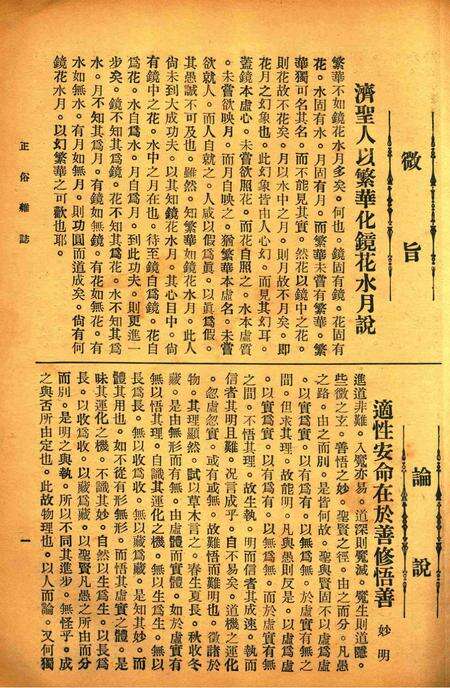 微旨
濟聖人以繁華化鏡花水月說
繁華不如鏡花水月多矣。何也。鏡固有鏡。花固有
花。水固有水。月固有月。而繁華未嘗有繁華。繁
華獨可名其名。而不能見其實。然花以鏡中之花。
則花故不花矣。月以水中之月。則月故不月矣。即
花月之幻象也。此幻象皆由人心幻。而見其幻耳。
蓋鏡本虛心。未嘗欲照花。而花自照之。水本虛質
。未嘗欲映月。而月自映之。猶繁華本虛名。未嘗
欲就人。而人自就之。人咸以假爲眞。以眞爲假。
其愚誠不可及也。雖然。知繁華如鏡花水月。此人
尙未到大成功夫。以其知鏡花水月。其心目中。尙
有鏡中之花。水中之月在也。待至鏡自爲鏡。花自
爲花。水自爲水。月自爲月。到此功夫。則更進一
步矣。鏡不知其爲鏡。花不知其爲花。水不知其爲
水。月不知其爲月。有鏡如無鏡。有花如無花。有
水如無水。有月如無月。則功圓而道成矣。尙有何
鏡花水月。以幻繁華之可歡也耶。
正俗雜誌
論說
適性安命在於善修悟善
妙明
進道非難。入魔亦易。道深則魔滅。魔生則道離。
些微之玄。善悟之妙。聖賢之徑。由之而分。凡愚
之路。由之而別。是皆何故。聖與賢固不以虛爲虛
。以實爲實。以有爲有。以無爲無。於虛實有無之
間。但求其理。故能明。凡與愚則反是。以虛爲虛
。以實爲實。以有爲有。以無爲無。而於虛實有無
之間。不悟其理。故生執。明而信者其成速。執而
信者其明且難。況言成乎。自不易矣。道機之運化
。忽虛忽實。或有或無。故難悟而難明也。徵諸於
物。其理顯然。試以草木言之。春生夏長。秋收冬
藏。是由無形而有無。由虛體而實體。如於虛實有
無以悟其理。自識其運化之機。無以生爲生。無以
長爲長。無以收爲收。無以藏爲藏。是知其妙。而
體其用也。如不從有形無形。而悟其虛實之體。是
昧其運化之機。不識其妙。自然以生爲生。以長爲
長。以收爲收。以藏爲藏。以聖賢凡愚之所由而分
而別。是明之與執。所以不同其進步。無怪乎。成
之與否所由定也。此故物理也。以人而論。又何獨
一